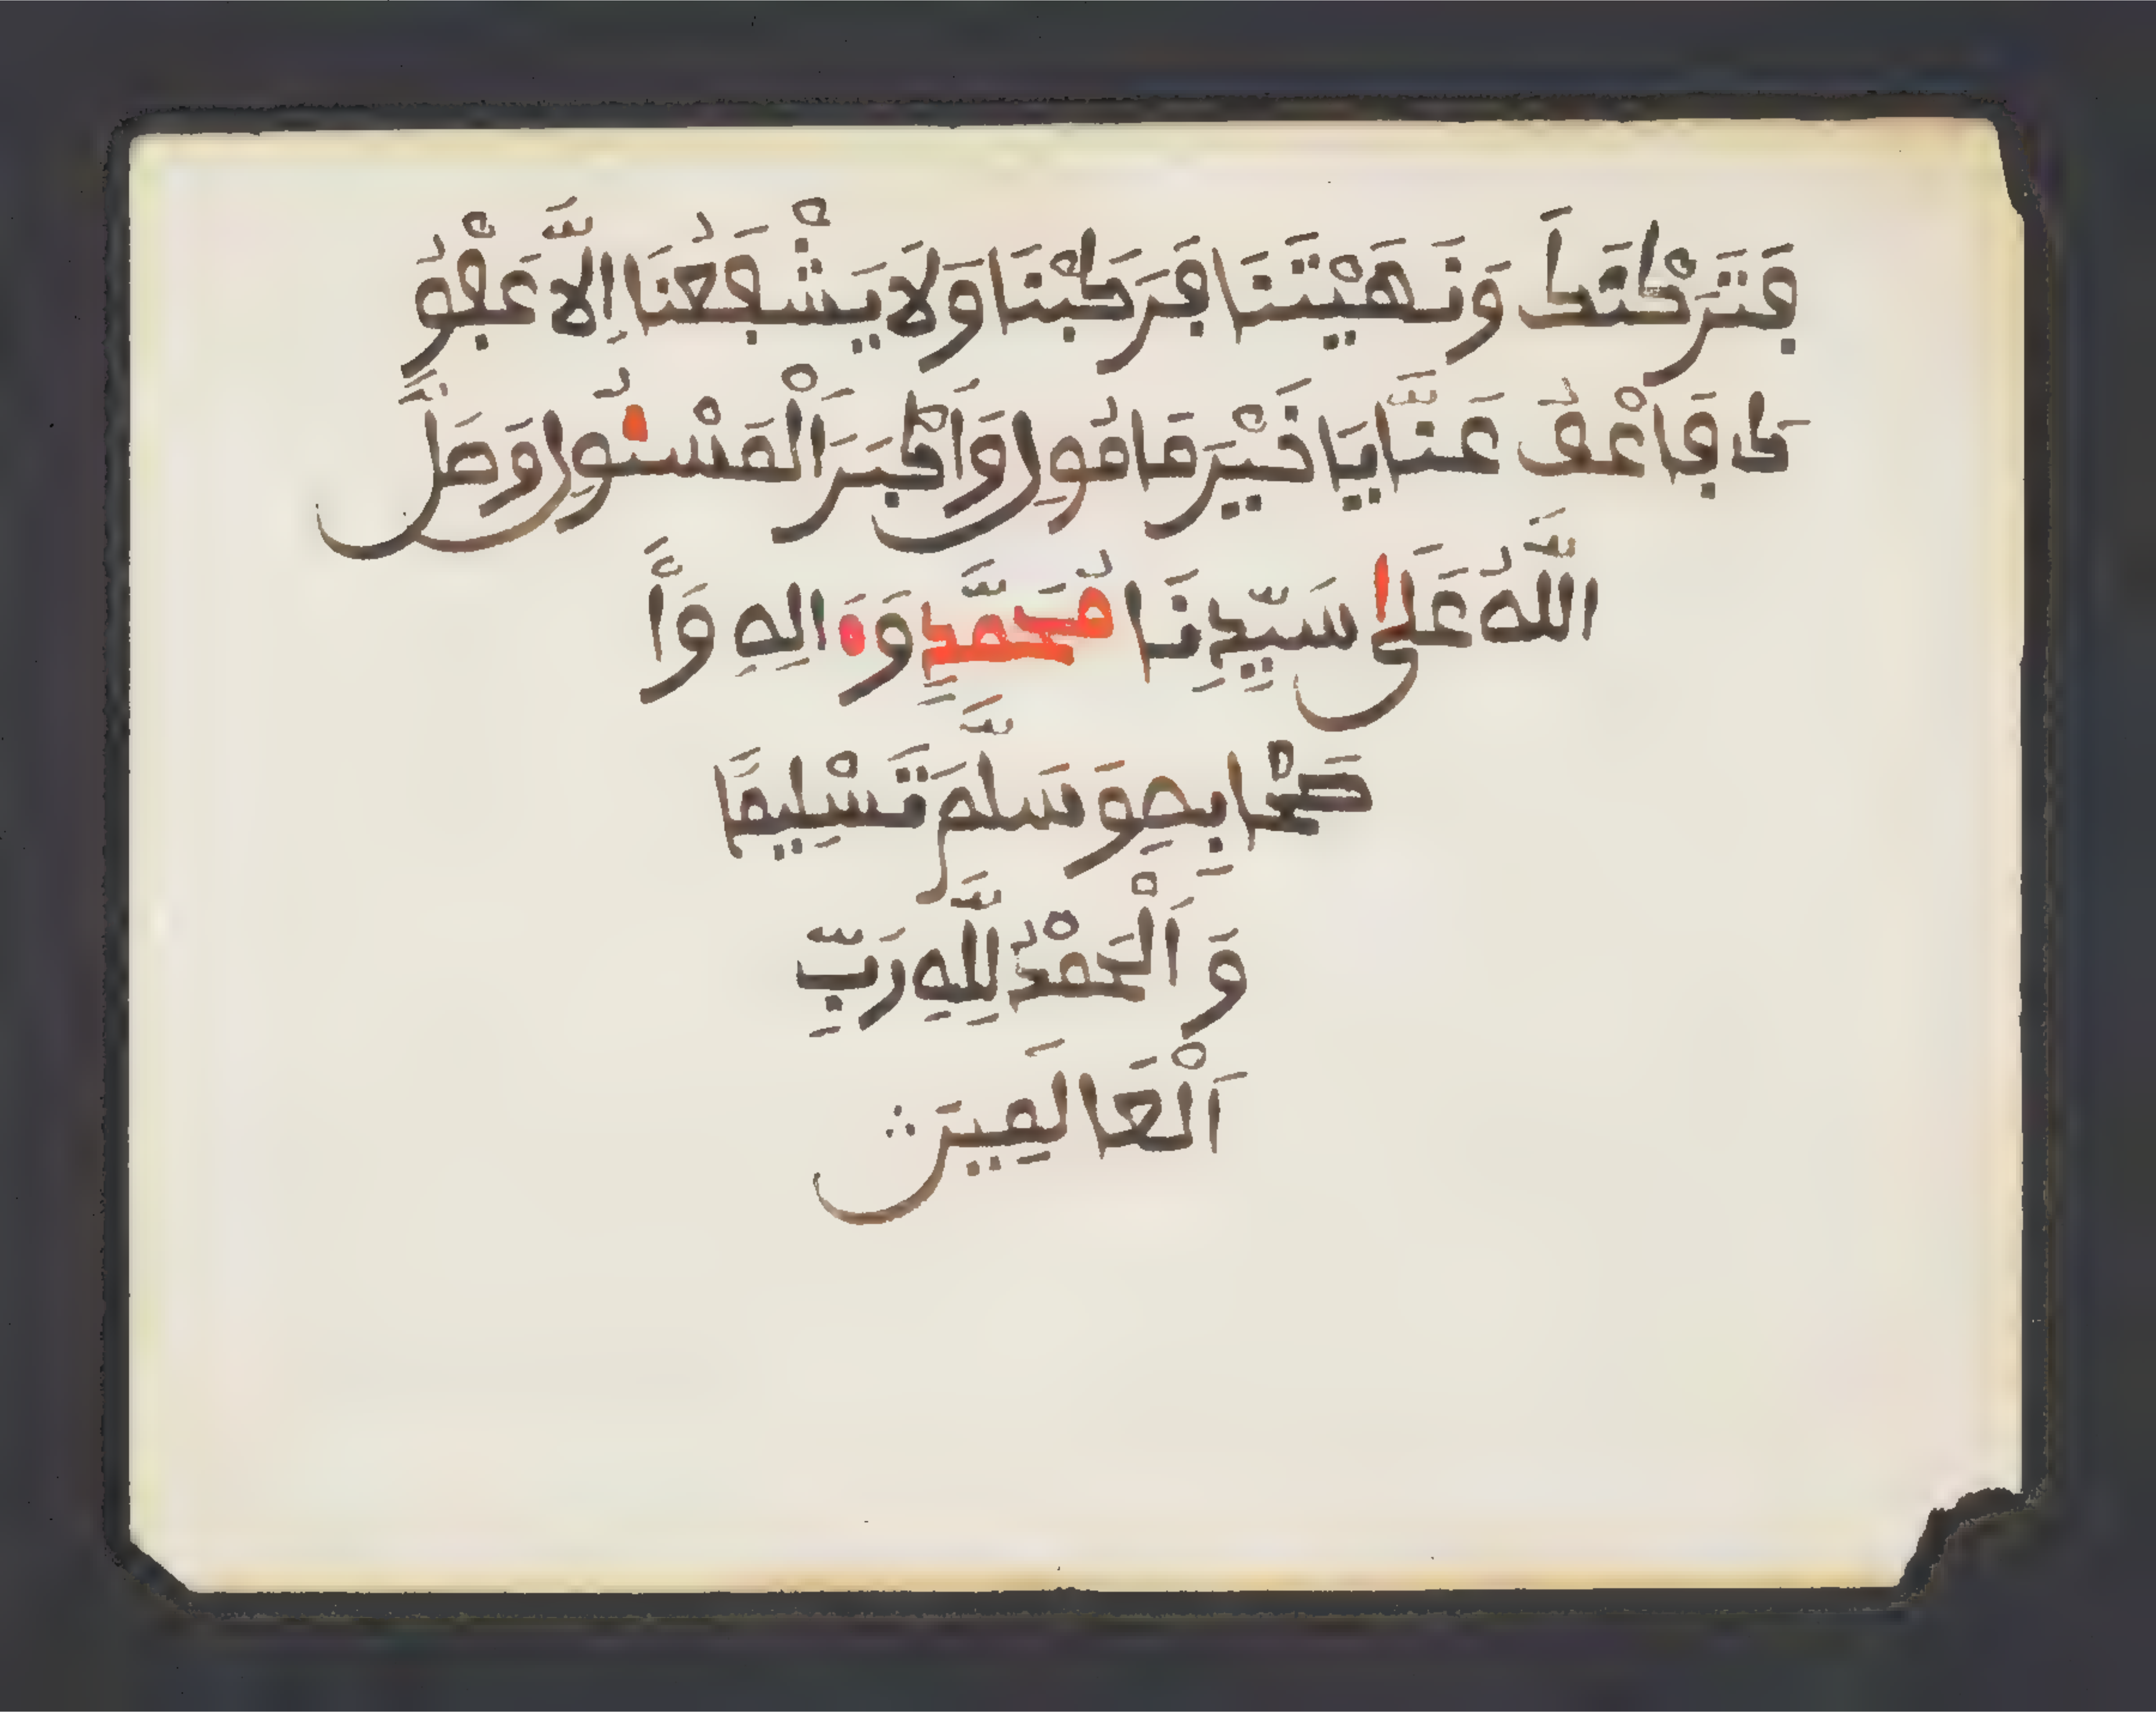 فَتَرَكْتَكَ وَنَهَيْتَنَا فَرَكِبْنَا وَلَا يَشْفَعُنَا إِلَّا عَفْوُ
كَ فَاعْفُ عَنَّا يَا خَيْرَ مَامُولٍ وَأَكْبَرَ الْمَسْئُولِ وَصَلَّ
اللَّهُ عَلَى سَيِّدِنَا مُحَمَّدٍ وَءَالِهِ وَأَ
صْحَابِهِ وَسَلَّمَ تَسْلِيمًا
وَالْحَمْدُ لِلَّهِ رَبِّ
الْعَالَمِينَ